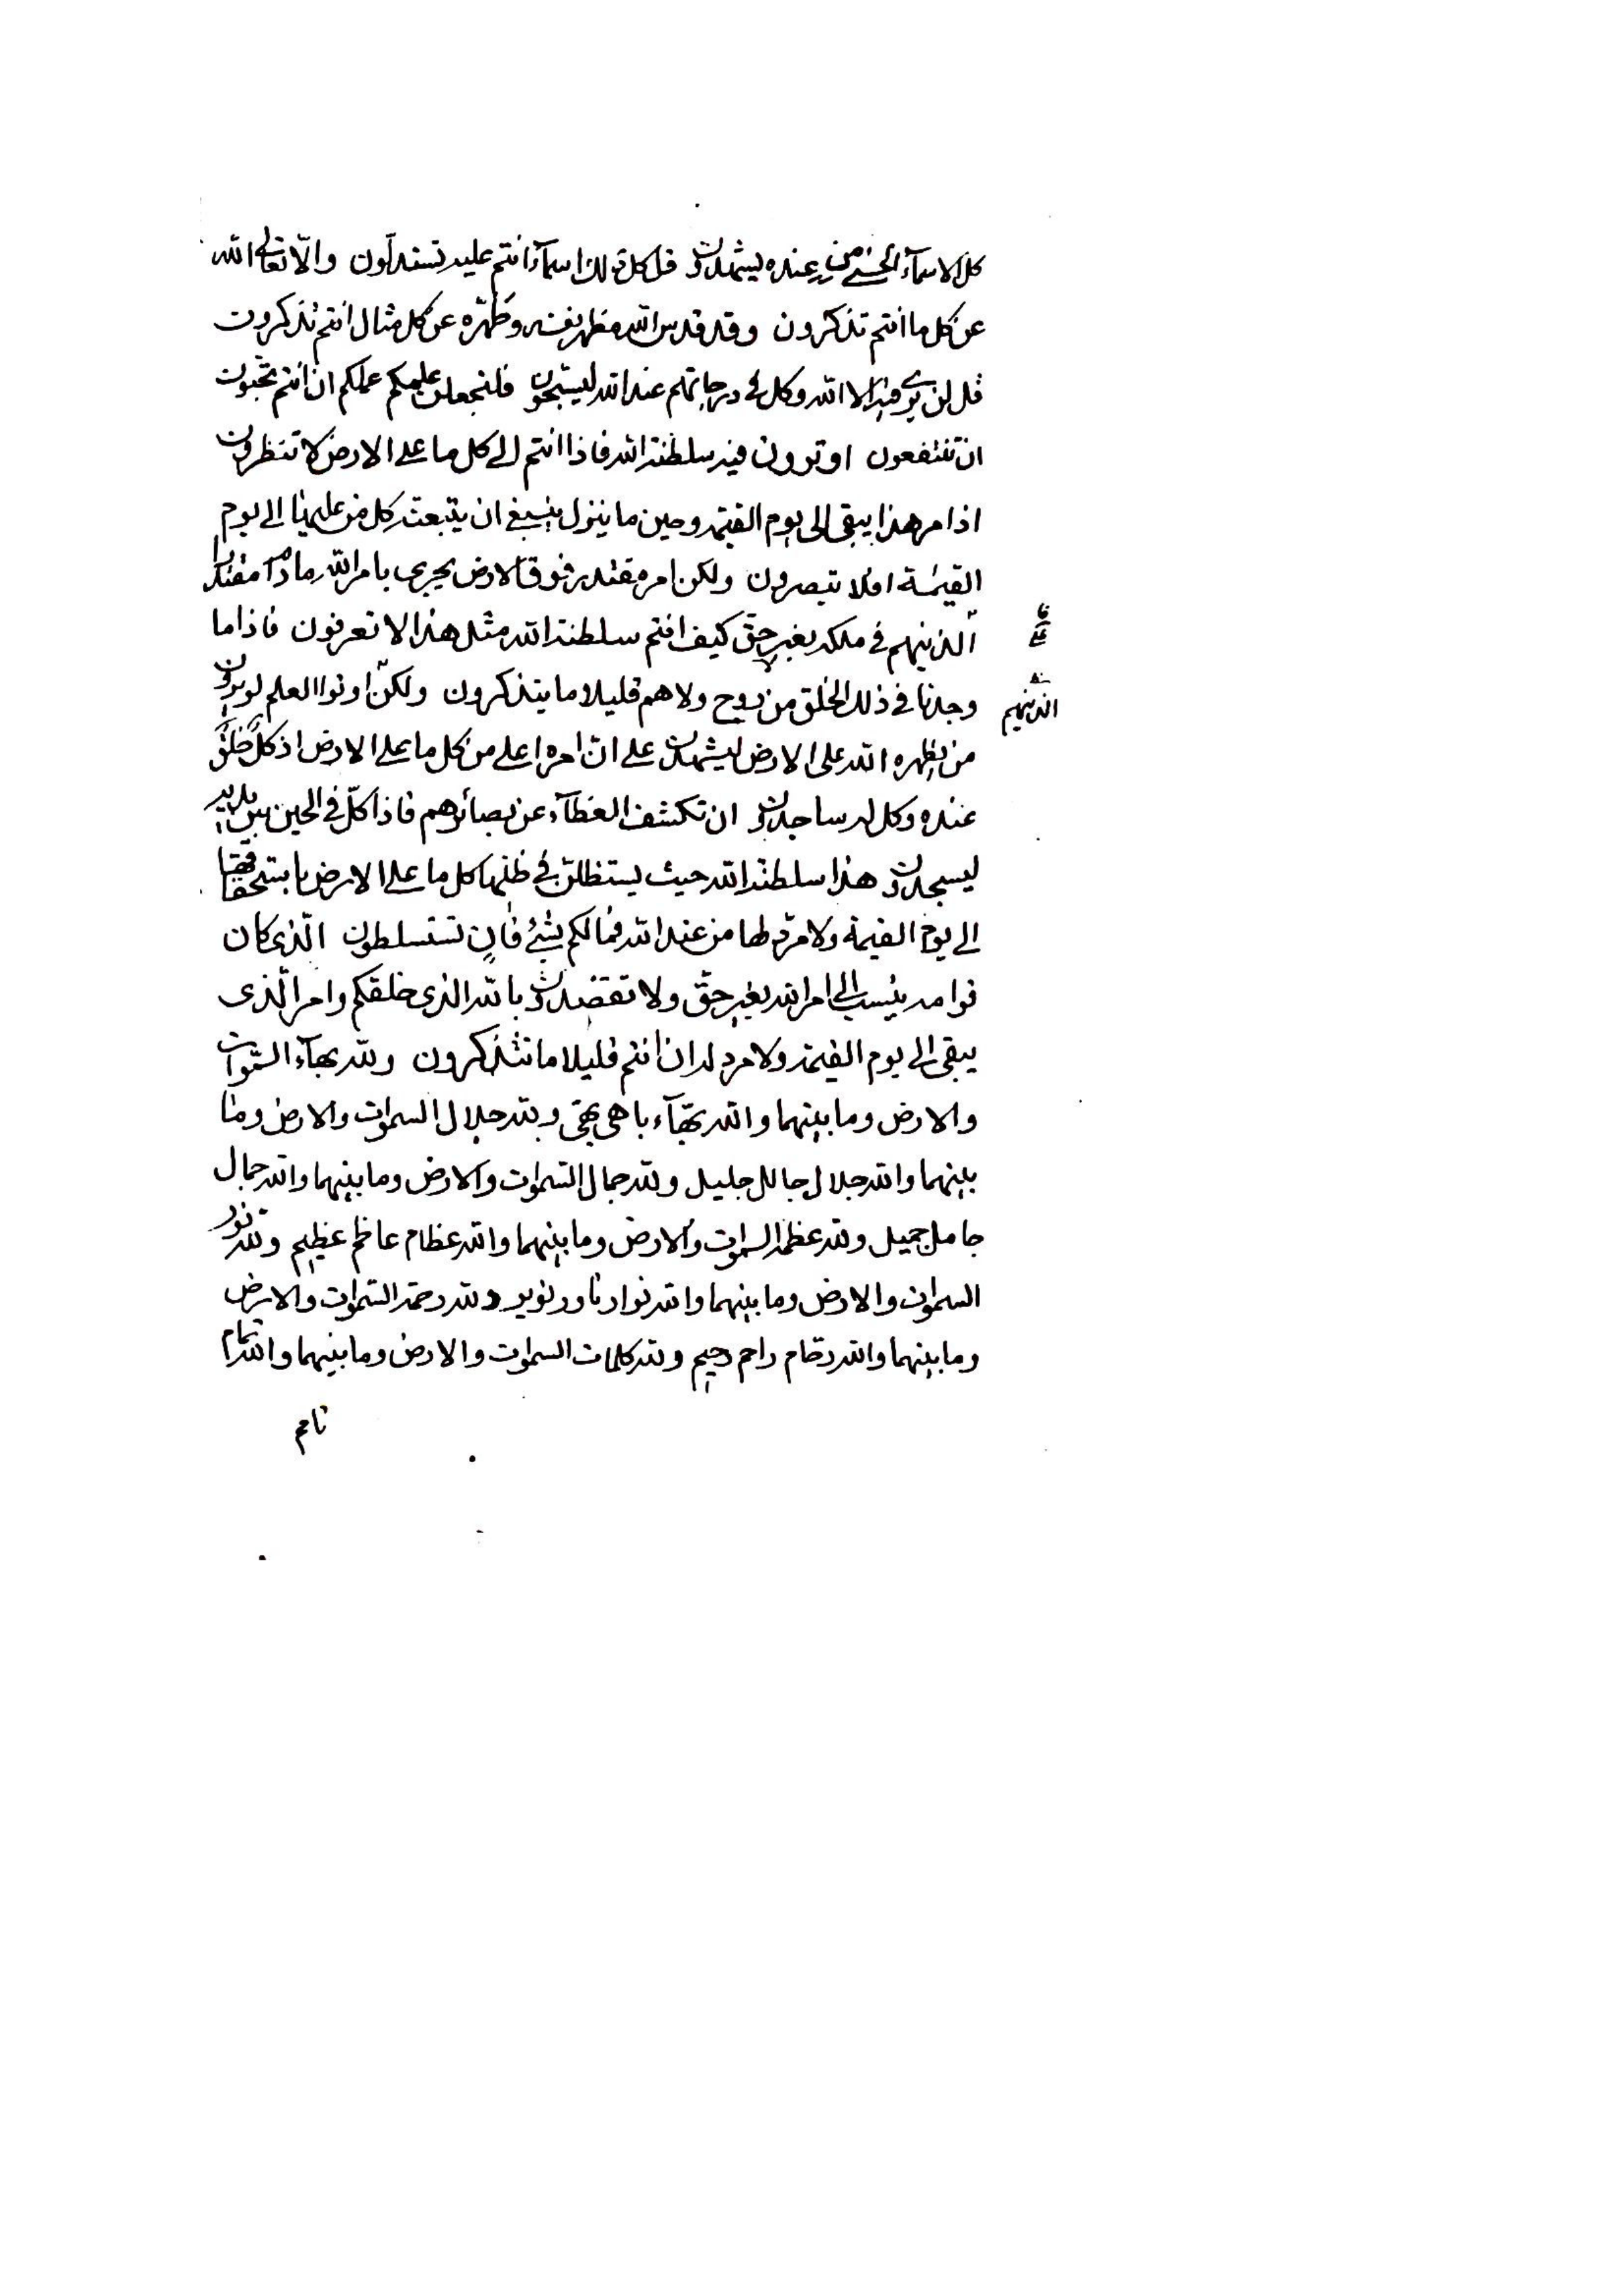 كل الاسمآء الحسنى من عنده ليشهدون قل كل ذلك اسمآء انتم عليه تستدلّون والّا تعالى الله
عن كل ما انتم تذكرون وقد قدس الله مظهر نفسه وطهّره عن كل مثال انتم تذكرون
قل لن يرى فيه الا الله وكل فى درجاتهم عند الله ليسبّحون فلتجعلن علمكم عملكم ان انتم تحبّون
ان تنتفعون او ترون فيه سلطنة الله فاذا انتم الى كل ما على الارض لا تنظرون
اذ امر هذا يبقى الى يوم القيمة وحين ما ينزل ينبغى ان يتبعنه كل من عليها الى يوم
القيمة افلا تبصرون ولكن امره مقتدر فوق الارض يجرى بامر الله
الذينهم فى ملكه بغير حقّ كيف انتم سلطنة الله مثل هذا لا تعرفون فاذا ما
وجدنا فى ذلك الخلق من روح ولا هم قليلا ما يتذكرون ولكنّ اوتوا العلم لو يرون
الذينهم
من يظهره الله على الارض ليشهدن على انّ امره اعلى من كل ما على الارض اذ كلّ خلق
عنده وكل له ساجدون ان تكشف الغطآء عن بصائرهم فاذا كلّ فى الحين بين يديه
ليسجدون هذا سلطنة الله حيث يستظلنّ فى ظلها كل ما على الارض باستحقاقها
الى يوم القيمة ولا مردّ لها من عند الله فمالكم بشئ فان تتسلطون الّذى كان
قوامه ينسب الى امر الله بغير حقّ ولا تقصدون بالله الذى خلقكم وامر الّذى
يبقى الى يوم القيمة ولا مرد له ان انتم قليلا ما تتذكرون ولله بهآء السّموات
والارض وما بينهما والله بهّآء باهى بهىّ ولله جلال السموات والارض وما
بينهما والله جلال جالل جليل ولله جمال السموات والارض وما بينهما والله جمال
جامل جميل ولله عظمة السموات والارض وما بينهما والله عظام عاظم عظيم ولله نور
السموات والارض وما بينهما والله نوار ناور نوير ولله رحمة السّموات والارض
وما بينهما والله رحّام راحم رحيم ولله كلمات السموات والارض وما بينهما والله تمام
تامم